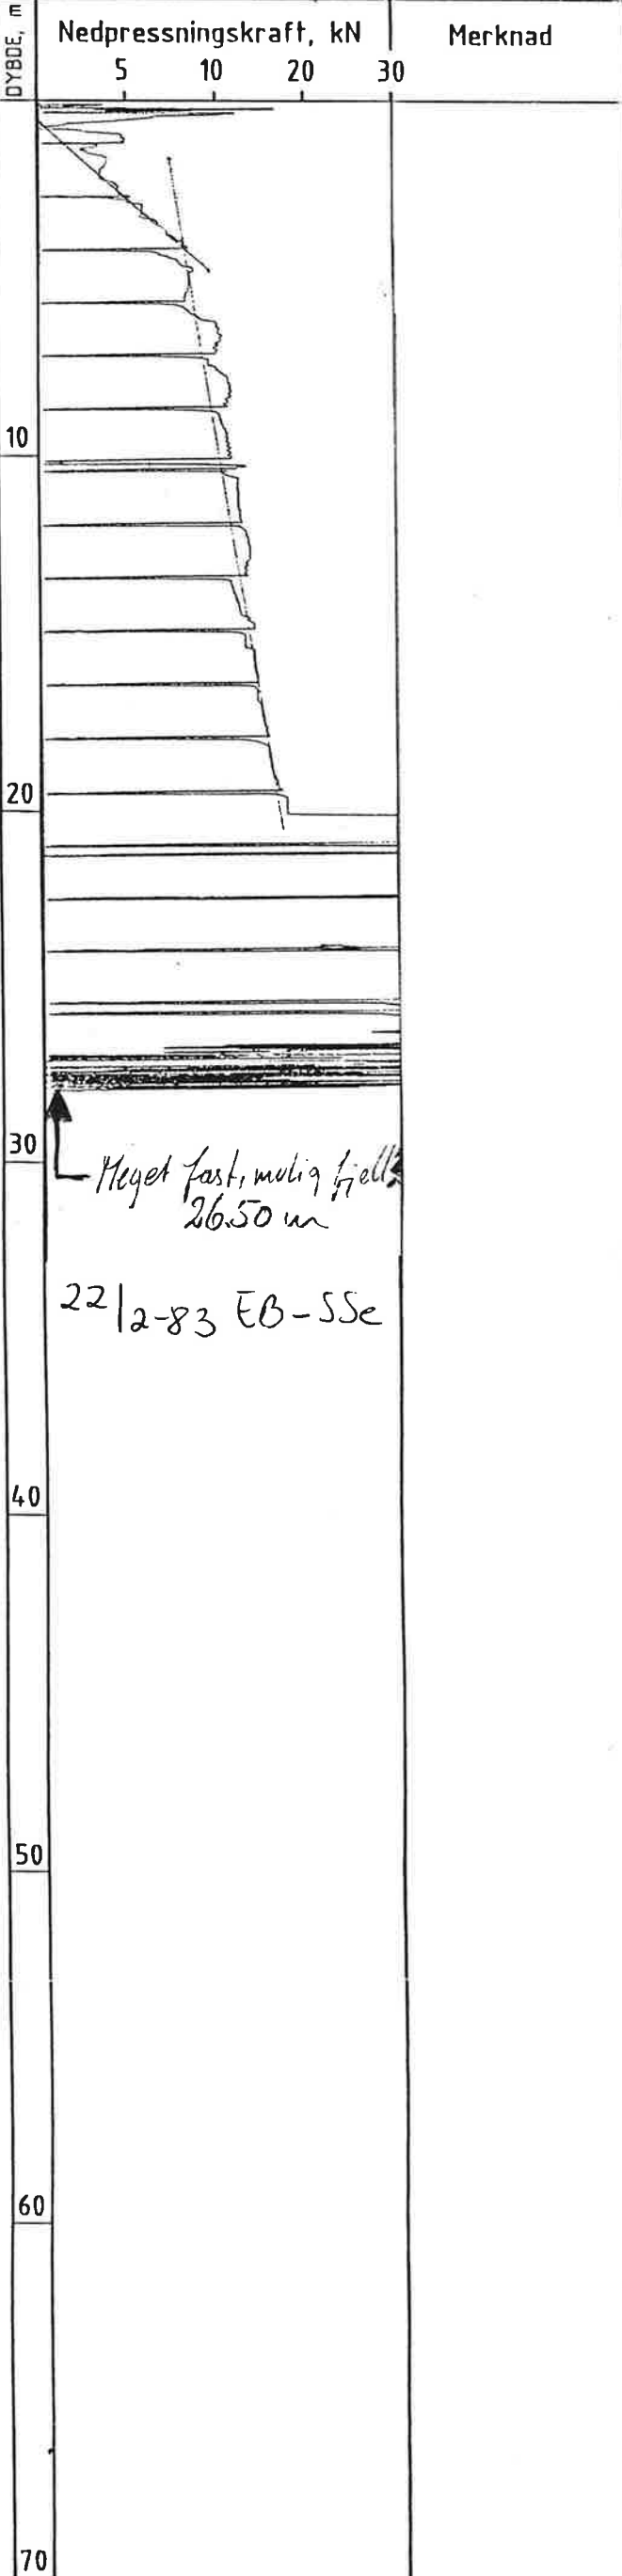 DYBDE, m
Nedpressningskraft, kN
Merknad
5 10 20 30
10
20
30
Meget fast, mulig fjell
26.50 m
22/2-83 EB-SSe
40
50
60
70